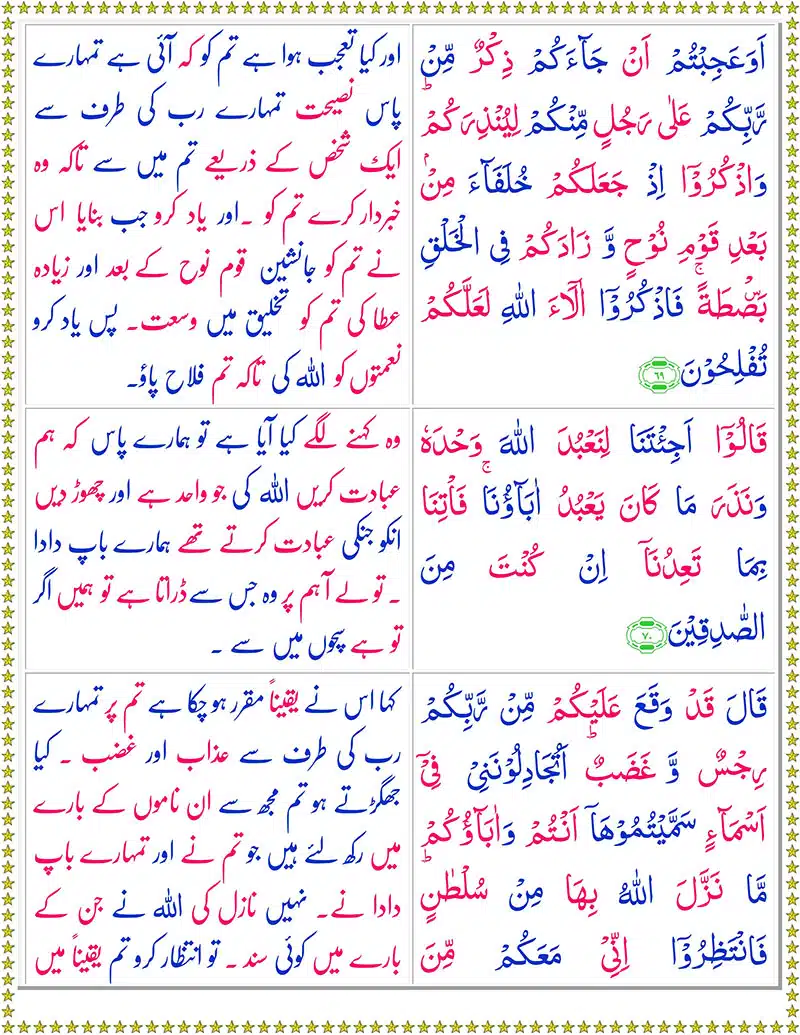 اَوَعَجِبْتُمْ اَنْ جَآءَكُمْ ذِكْرٌ مِّنْ
رَّبِّكُمْ عَلٰى رَجُلٍ مِّنْكُمْ لِيُنْذِرَكُمْؕ
وَاذْكُرُوْۤا اِذْ جَعَلَكُمْ خُلَفَآءَ مِنْۢ
بَعْدِ قَوْمِ نُوْحٍ وَّ زَادَكُمْ فِى الْخَلْقِ
بَصْۜطَةً‌ ۚ فَاذْكُرُوْۤا اٰلَۤاءَ اللّٰهِ لَعَلَّكُمْ
تُفْلِحُوْنَ ﴿۶۹﴾
اور کیا تعجب ہوا ہے تم کو کہ آئی ہے تمہارے
پاس نصیحت تمہارے رب کی طرف سے
ایک شخص کے ذریعے تم میں سے تاکہ وہ
خبردار کرے تم کو ۔اور یاد کرو جب بنایا اس
نے تم کو جانشین قوم نوح کے بعد اور زیادہ
عطا کی تم کو تخلیق میں وسعت۔ پس یاد کرو
نعمتوں کو اللہ کی تاکہ تم فلاح پاؤ۔
قَالُوْۤا اَجِئْتَنَا لِنَعْبُدَ اللّٰهَ وَحْدَهٗ
وَنَذَرَ مَا كَانَ يَعْبُدُ اٰبَآؤُنَا‌ ۚ فَاْتِنَا
بِمَا تَعِدُنَاۤ اِنْ كُنْتَ مِنَ
الصّٰدِقِيْنَ ﴿۷۰﴾
وہ کہنے لگے کیا آیا ہے تو ہمارے پاس کہ ہم
عبادت کریں اللہ کی جو واحد ہے اور چھوڑ دیں
انکو جنکی عبادت کرتے تھے ہمارے باپ دادا
۔ تو لے آ ہم پر وہ جس سے ڈراتا ہے تو ہمیں اگر
تو ہے سچوں میں سے ۔
قَالَ قَدْ وَقَعَ عَلَيْكُمْ مِّنْ رَّبِّكُمْ
رِجْسٌ وَّ غَضَبٌ‌ؕ اَتُجَادِلُوْنَنِىْ فِىْۤ
اَسْمَآءٍ سَمَّيْتُمُوْهَاۤ اَنْتُمْ وَاٰبَآؤُكُمْ
مَّا نَزَّلَ اللّٰهُ بِهَا مِنْ سُلْطٰنٍ‌ؕ
فَانْتَظِرُوْۤا اِنِّىْ مَعَكُمْ مِّنَ
کہا اس نے یقیناً مقرر ہو چکا ہے تم پر تمہارے
رب کی طرف سے عذاب اور غضب ۔ کیا
جھگڑتے ہو تم مجھ سے ان ناموں کے بارے
میں رکھ لئے ہیں جو تم نے اور تمہارے باپ
دادا نے۔ نہیں نازل کی اللہ نے جن کے
بارے میں کوئی سند ۔ تو انتظار کرو تم یقیناً میں